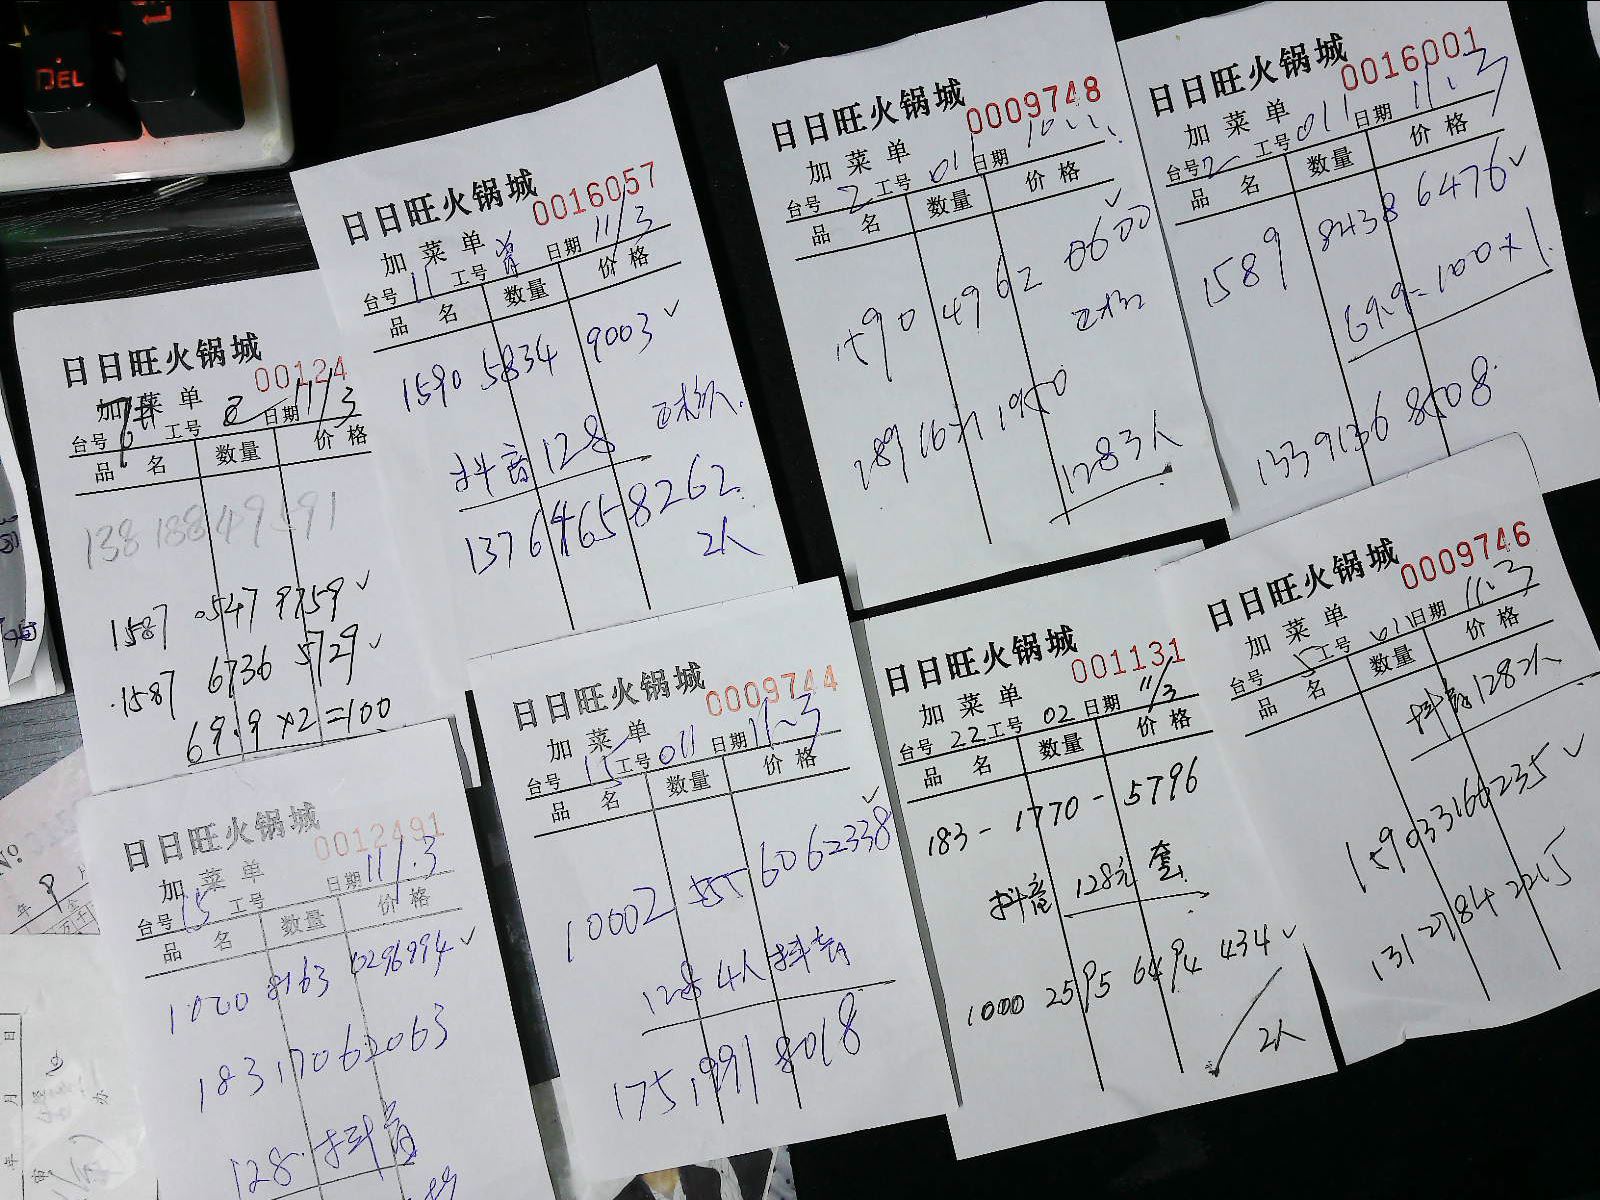 DEL
日日旺火锅城
00124
加菜单
台号 工号 2 日期 11/3
品 名 数量 价 格
138 188 49591
1587 0547 9759✓
1587 6736 5729✓
69.9×2=100
日日旺火锅城
0016057
加菜单
台号 11 工号 日期 11/3
品 名 数量 价 格
1590 5834 9003✓
抖音128
13764658262
2人
日日旺火锅城
0009748
加菜单
台号 2 工号 011 日期
品 名 数量 价 格
1590 4962 0600✓
1283人
日日旺火锅城
0016001
加菜单
台号 2 工号 011 日期 11.3
品 名 数量 价 格
1589 8438 6476✓
69.9=100×1
1339136 8508
日日旺火锅城
0012491
加菜单
台号 15 工号 日期 11/.3
品 名 数量 价 格
1020 8163 0296994✓
18317062063
128.抖音
日日旺火锅城
0009744
加菜单
台号 15 工号 011 日期 11.3
品 名 数量 价 格
10002 555 6062338✓
128 4人抖音
175 1991 8018
日日旺火锅城
001131
加菜单
台号 22 工号 02 日期 11/3
品 名 数量 价 格
183-1770-5796
抖音 128元 套
1000 2595 6494 434✓
2人
日日旺火锅城
0009746
加菜单
台号 5 工号 011 日期 11.3
品 名 数量 价 格
抖音128 2人
159033166235✓
131 2784 2215
№
年 月 日